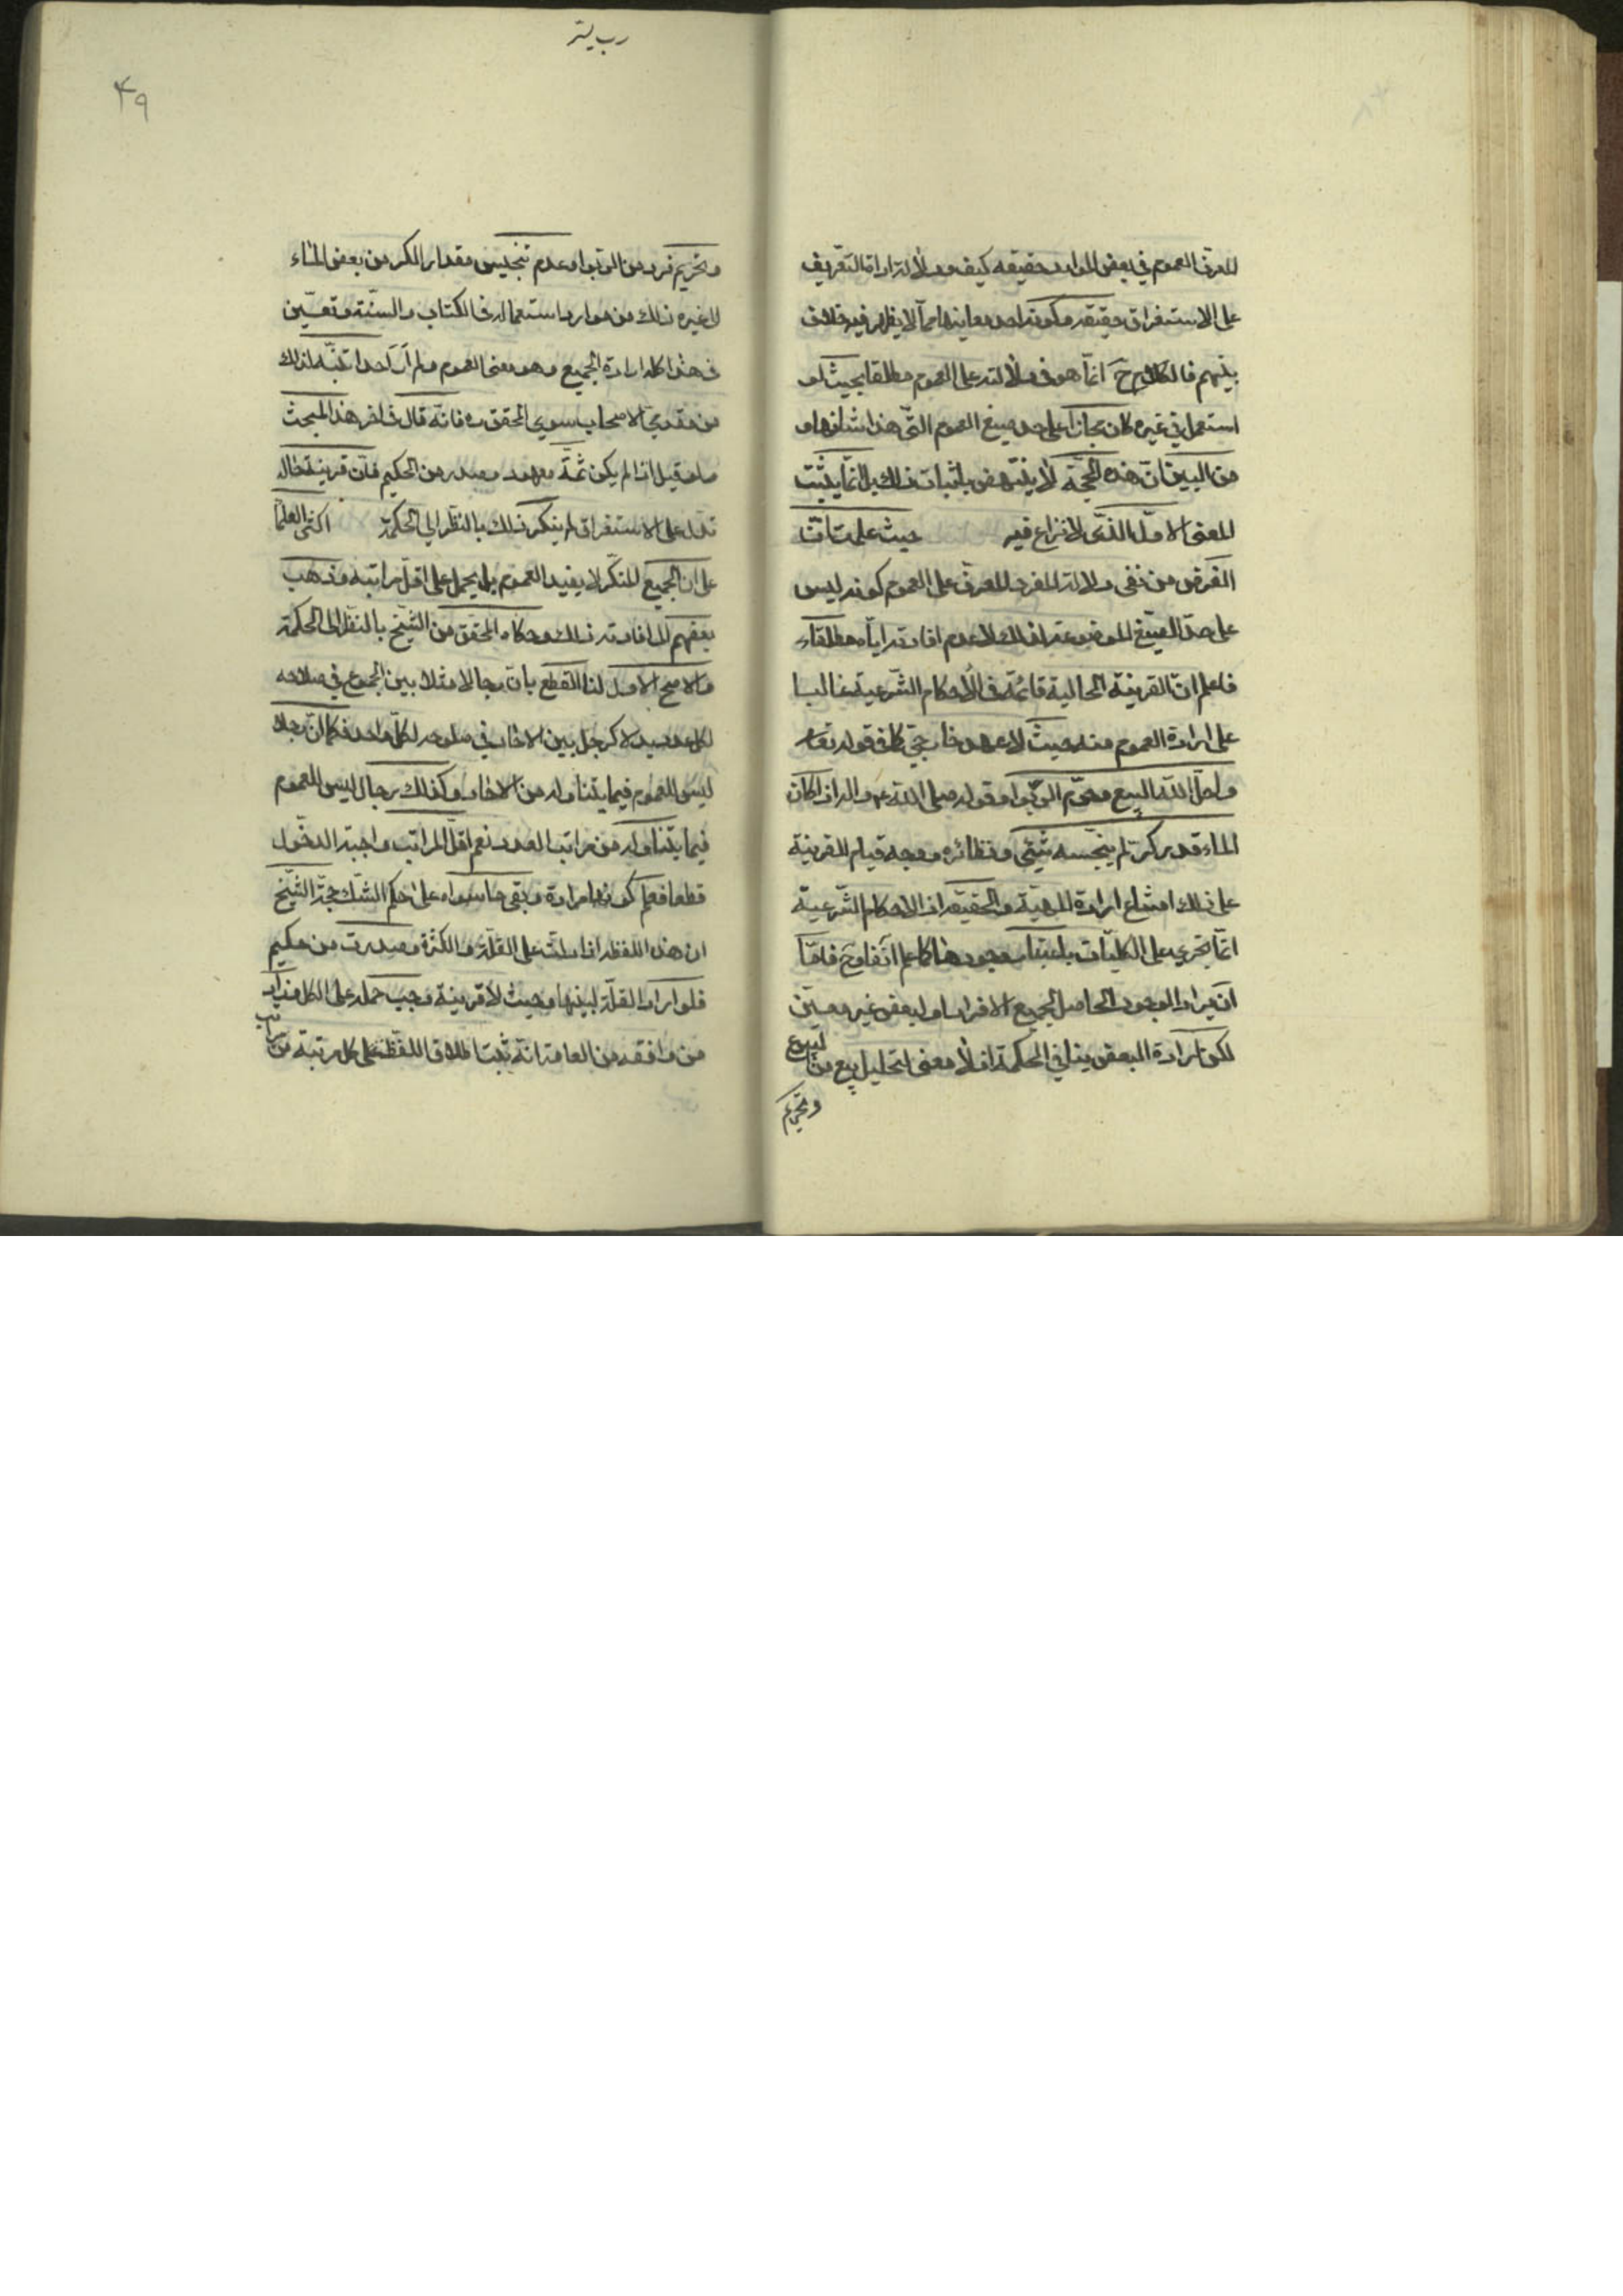 المعرف العموم في بعض الموارد حقيقه كيف ودلالة اداة التعريف
على الاستغراق حقيقه وكونه احد معانيها مما لا يظهر فيه خلاف
بينهم فالكلام ح انما هو في دلالته على العموم مطلقا بحيث لو
استعمل في غيره كان مجازا على حد صيغ العموم التي هذا شانها و
من البين ان هذه الحجة لا ينتهض باثبات ذلك بل انما يثبت
المعنى الاول الذي لا نزاع فيه حيث علمت ان
الغرض من نفي دلالة المفرد المعرف على العموم كونه ليس
على حد الصيغ الموضوعة لذلك لا عدم افادته اياه مطلقا
فاعلم ان القرينة الحالية قائمة في الأحكام الشرعية غالبا
على ارادة العموم منه حيث لا عهد خارجي كما في قوله تعا
واحل الله البيع وحرم الربوا وقوله صلى الله عليه واله اذا كان
الماء قدر كر لم ينجسه شيئ ونظائره ووجه قيام القرينة
على ذلك امتناع ارادة المهية والحقيقة اذ الاحكام الشرعية
انما تجري على الكليات باعتبار وجودها كما علم آنفا وح فاما
ان يراد الوجود الحاصل لجميع الافراد او لبعض غير معين
لكن ارادة البعض ينافي الحكمة اذ لا معنى لتحليل بيع من
البيوع
وتحريم
رب يسر
٤٩
وتحريم فرد من الربوا وعدم تنجيس مقدار الكر من بعض الماء
الى غير ذلك من موارد استعماله في الكتاب والسنة وتعين
في هذا كله ارادة الجميع وهو معنى العموم ولم أر احدا تنبه لذلك
من متقدمي الاصحاب سوى المحقق ره فانه قال في اخر هذا المبحث
ولو قيل اذا لم يكن ثمة معهود وصدر من الحكيم فان قرينة حاله
تدل على الاستغراق لم ينكر ذلك بالنظر الى الحكمة اكثر العلماء
على ان الجمع المنكر لا يفيد العموم بل يحمل على اقل مراتبه وذهب
بعضهم الى افادته ذلك وحكاه المحقق من الشيخ بالنظر الى الحكمة
والاصح الاول لنا القطع بان رجالا مثلا بين الجموع في صلاحه
لكل عدد بدلا كرجل بين الاحاد في صلوحه لكل واحد فكما ان رجلا
ليس للعموم فيما يتناوله من الاحاد وكذلك رجال ليس للعموم
فيما يتناوله من مراتب العدد نعم اقل المراتب واجبة الدخول
قطعا فعلم كونها مرادة وبقي ما سواه على حكم الشك حجة الشيخ
ان هذا اللفظ اذا دلت على القلة والكثرة وصدرت من حكيم
فلو اراد القلة لبينها وحيث لا قرينة وجب حمله على الكل وزاد
من وافقه من العامة انه ثبت اطلاق اللفظ على كل مرتبة من
مراتب